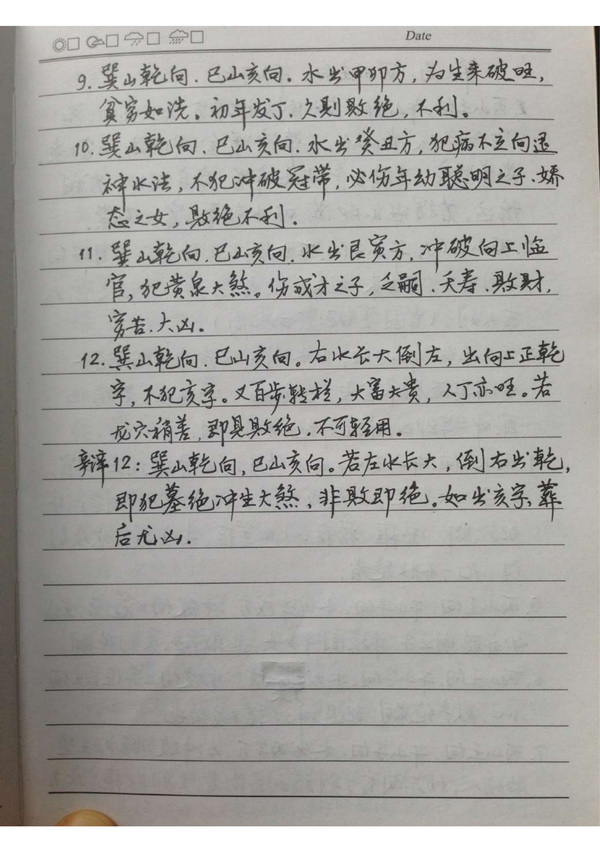 Date
9. 巽山乾向.巳山亥向.水出甲卯方,为生来破旺,
贫穷如洗。初年发丁.久则败绝,不利。
10. 巽山乾向.巳山亥向.水出癸丑方,犯病不立向退
神水法,不犯冲破冠带,必伤年幼聪明之子.娇
态之女,败绝不利.
11. 巽山乾向.巳山亥向.水出艮寅方,冲破向上临
官,犯黄泉大煞。伤成才之子,乏嗣.夭寿.败财,
穷苦.大凶。
12. 巽山乾向.巳山亥向。右水长大倒左,出向上正乾
字,不犯亥字。又百步转栏,大富大贵,人丁亦旺。若
龙穴稍差,即是败绝.不可轻用。
辛谇12:巽山乾向,巳山亥向。若左水长大,倒右出乾,
即犯墓绝冲生大煞,非败即绝。如出亥字,葬
后尤凶.